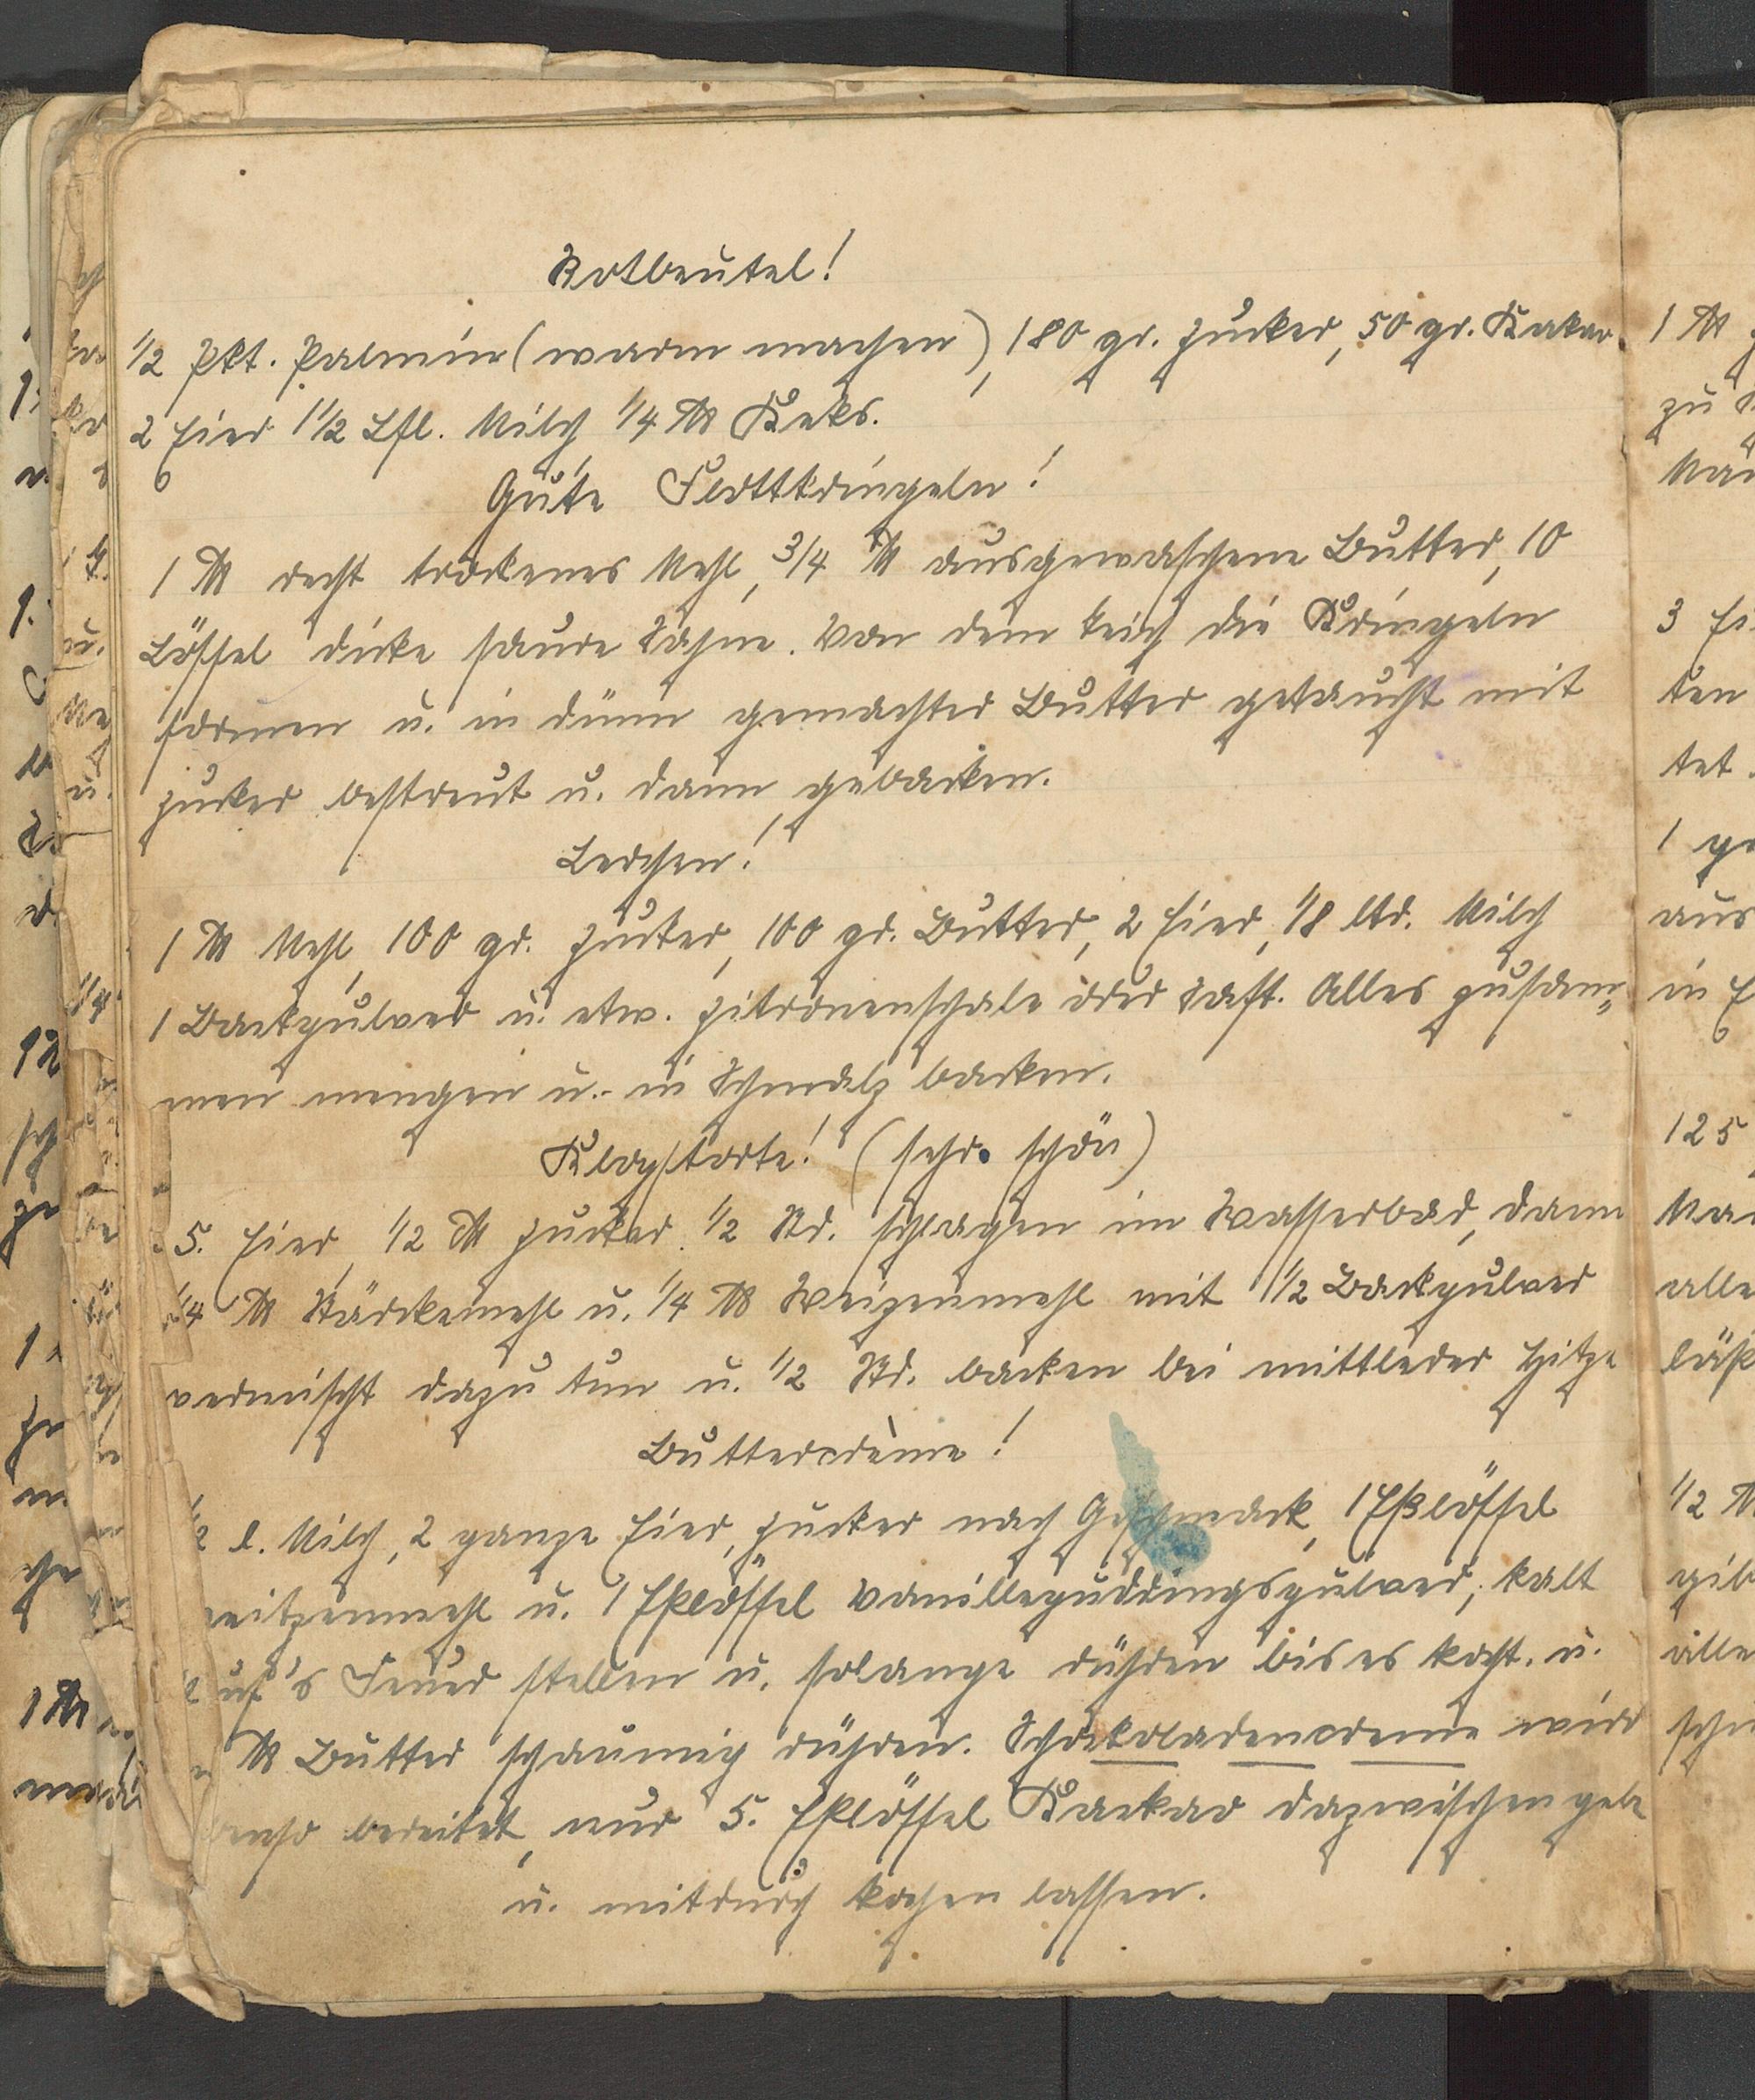 Rotbeutel!
1/2 Pkt. Palmin (warm machen), 180 gr. Zucker, 50 gr. Kakao
2 Eier 1 1/2 Lfl. Milch 1/4 ℔ Keks.
Gute Flottkringeln!
1 ℔ recht trockenes Mehl, 3/4 ℔ ausgewaschene Butter, 10
Löffel dicke saure Sahne. Von dem Teich die Kringeln
formen u. in dünn gemachter Butter getaucht mit
Zucker bestreut u. dann gebacken.
Lerchen!
1 ℔ Mehl, 100 gr. Zucker, 100 gr. Butter, 2 Eier, 1/8 ltr. Milch
1 Backpulver u. etw. Zitronenschale oder Saft. Alles zusam„
men mengen u. in Schmalz backen.
Klopstorte! (sehr. schön)
5. Eier, 1/2 ℔ Zucker. 1/2 Std. schlagen im Wasserbad, dann
1/4 ℔ Stärkemehl u. 1/4 ℔ Weizenmehl mit 1 1/2 Backpulver
vermischt dazu tun u. 1/2 Std. backen bei mittlerer Hitze
Buttercrème!
1/2 l. Milch, 2 ganze Eier, Zucker nach Geschmack, 1 Eßlöffel
weitzenmehl u. 1 Eßlöffel Vanillepuddingspulver; kalt
auf's Feuer stellen u. solange rühren bis es kocht. u.
℔ Butter schaumig rühren. Schokoladencreme wird
ebenso bereitet, nur 5. Eßlöffel Kackao dazwischen gebe
u. mitdurch kochen lassen.